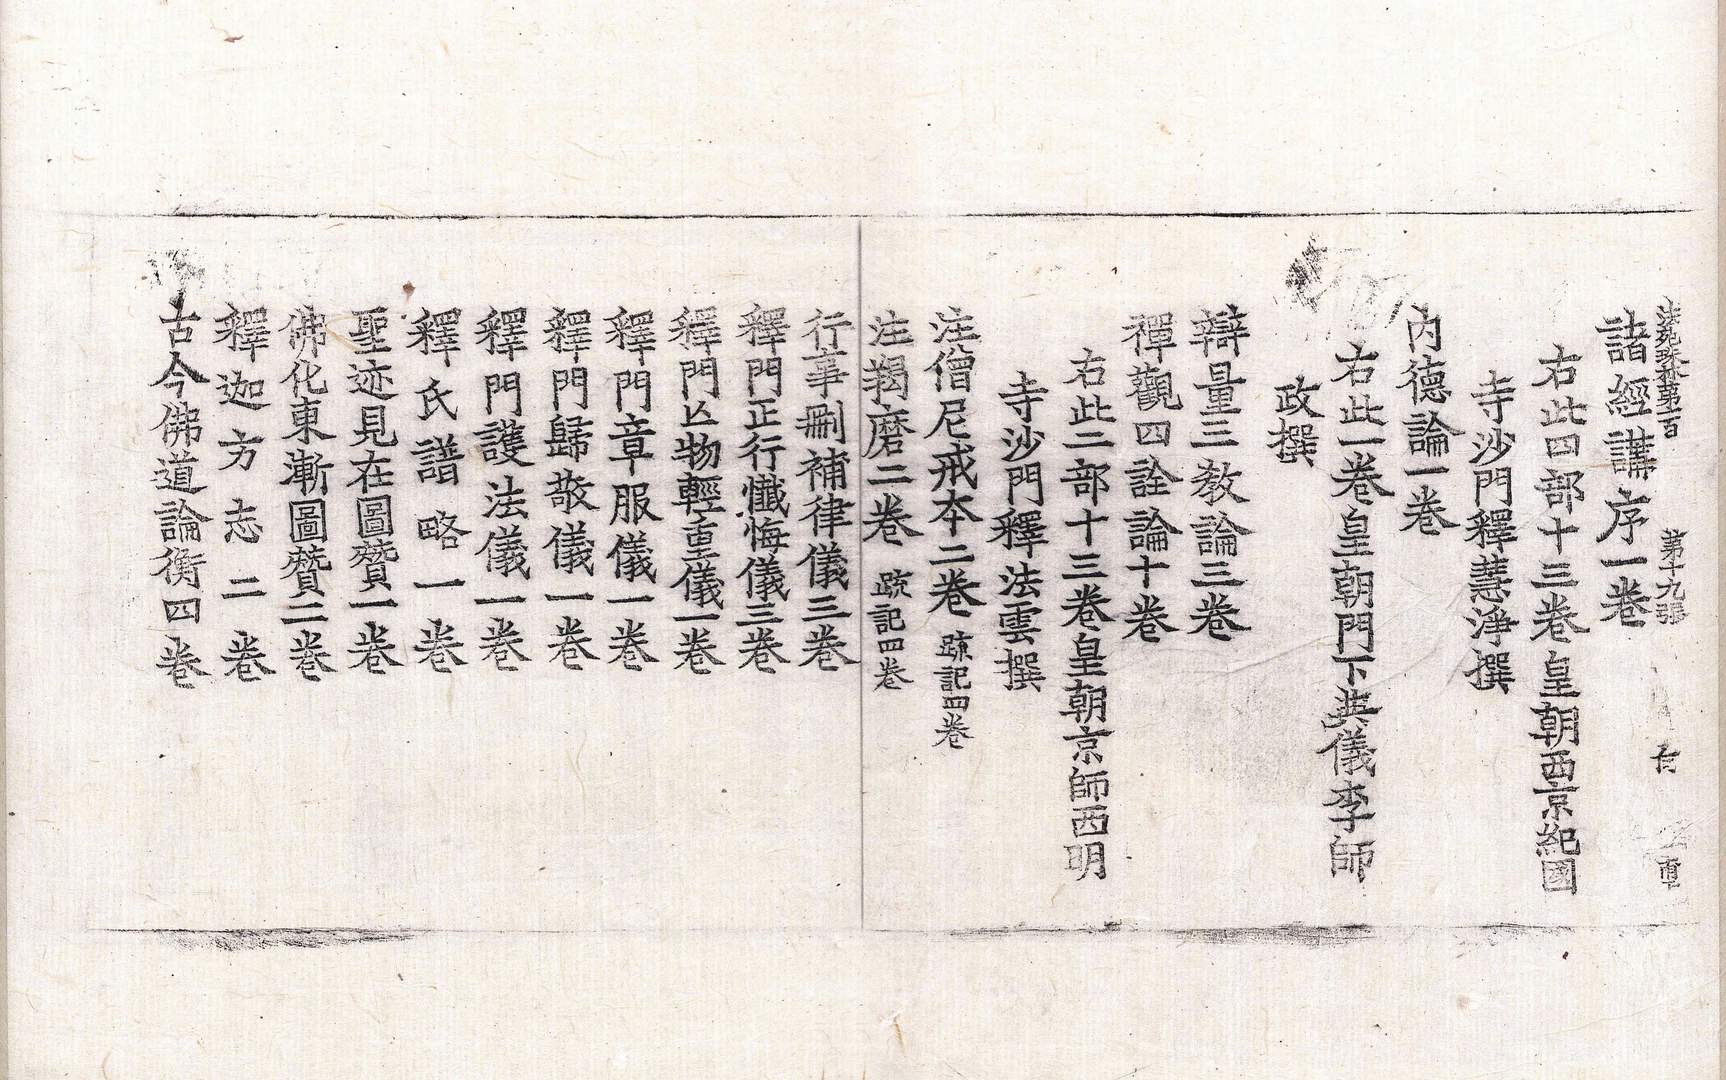 法苑珠林第一百　第十九張
諸經講序一卷
右此四部十三卷皇朝西京紀國
寺沙門釋慧淨撰
內德論一卷
右此一卷皇朝門下典儀李師
政撰
辯量三教論三卷
禪觀四詮論十卷
右此二部十三卷皇朝京師西明
寺沙門釋法雲撰
注僧尼戒本二卷 疏記四卷
注羯磨二卷 疏記四卷
行事刪補律儀三卷
釋門正行懺悔儀三卷
釋門亡物輕重儀一卷
釋門章服儀一卷
釋門歸敬儀一卷
釋門護法儀一卷
釋氏譜略一卷
聖迹見在圖贊一卷
佛化東漸圖贊二卷
釋迦方志二卷
古今佛道論衡四卷